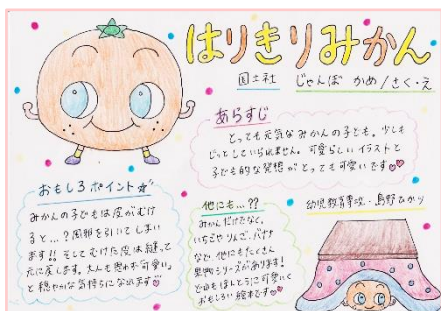 はりきりみかん
国土社 じゃんぼ かめ/さく・え
あらすじ
とっても元気なみかんの子ども。少しも
じっとしていられません。可愛らしいイラストと
子ども的な発想がとっても可愛いです
おもしろポイント
みかんの子どもは皮がむけ
ると…?風邪を引いてしまい
ます!!そしてむけた皮は縫って
元に戻します。大人も思わず可愛い。
と穏やかな気持ちになれます
他にも…??
みかんだけでなく、
いちごやりんご、バナナ
など、他にもたくさん
果物シリーズがあります!
どれもほんとうに可愛くて
おもしろい絵本です
幼児教育専攻・島野ひかり